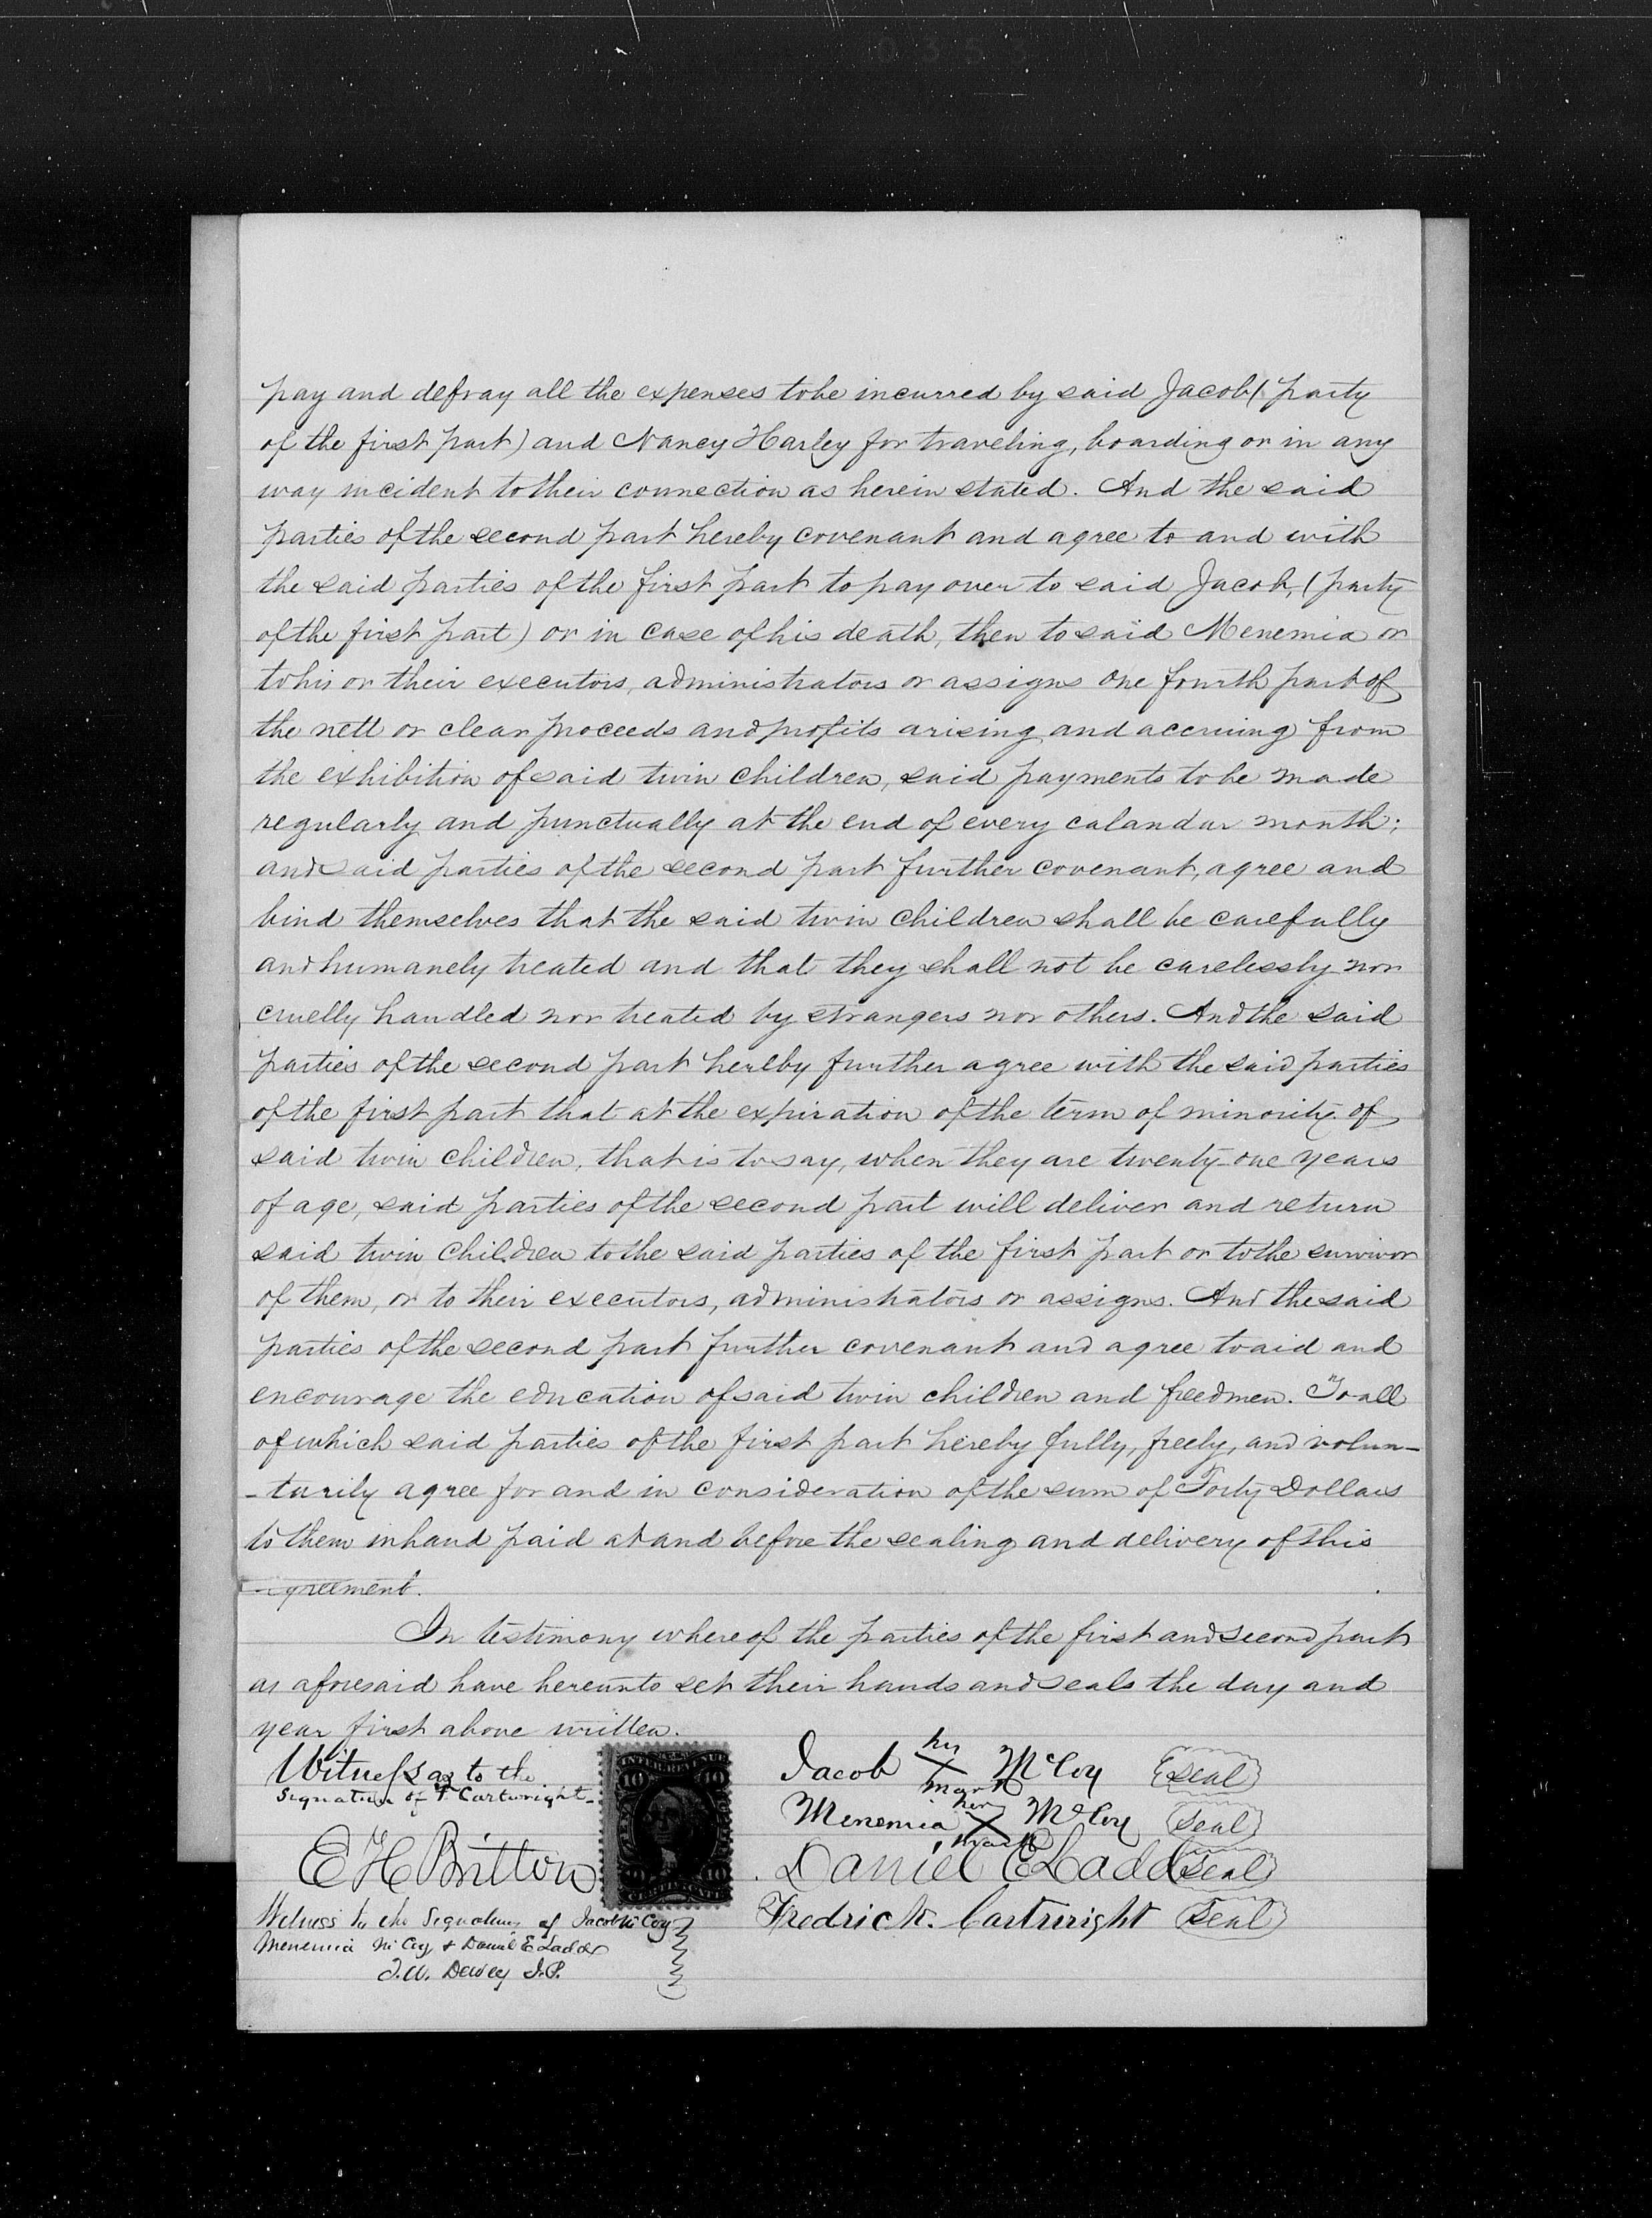 pay and defray all the expenses to be incurred by said Jacob (party
of the first part) and Nancy Harley for traveling, boarding or in any
way incident to their connection as herein stated. And the said
parties of the second part hereby covenant and agree to and with
the said parties of the first part to pay over to said Jacob, (party
of the first part) or in case of his death, then to said Menemia or
to his or their executors, administrators or assigns one fourth part of
the nett or clear proceeds and profits arising and accruing from
the exhibition of said twin children, said payments to be made
regularly and punctually at the end of every calandar month;
and said parties of the second part further covenant, agree and
bind themselves that the said twin children shall be carefully
and humanely treated and that they shall not be carelessly nor
cruelly handled nor treated by strangers nor others. And the said
parties of the second part hereby further agree with the said parties
of the first part that at the expiration of the term of minority of
said twin children, that is to say, when they are twenty-one years
of age, said parties of the second part will deliver and return
said twin children to the said parties of the first part or to the survivor
of them, or to their executors, administrators or assigns. And the said
parties of the second part further covenant and agree to aid and
encourage the education of said twin children and freedmen. To all
of which said parties of the first part hereby fully, freely, and volun-
-tarily agree for and in consideration of the sum of Forty Dollars
to them in hand paid at and before the sealing and delivery of this
agreement.
In testimony whereof the parties of the first and second part
as aforesaid have hereunto set their hands and seals the day and
year first above written.
Witness as to the
signature of F Cartwright-
E H Britton
Witness to the Signatures of Jacob McCoy
Menemia McCoy & Daniel E Ladd
T. W. Dewey J.P.
INTER. REVENUE
10 10
10 10
CERTIFICATE
Jacob his X mark McCoy Seal
Menemia her X mark McCoy Seal
Daniel E Ladd Seal
Fredrick. Cartwright Seal